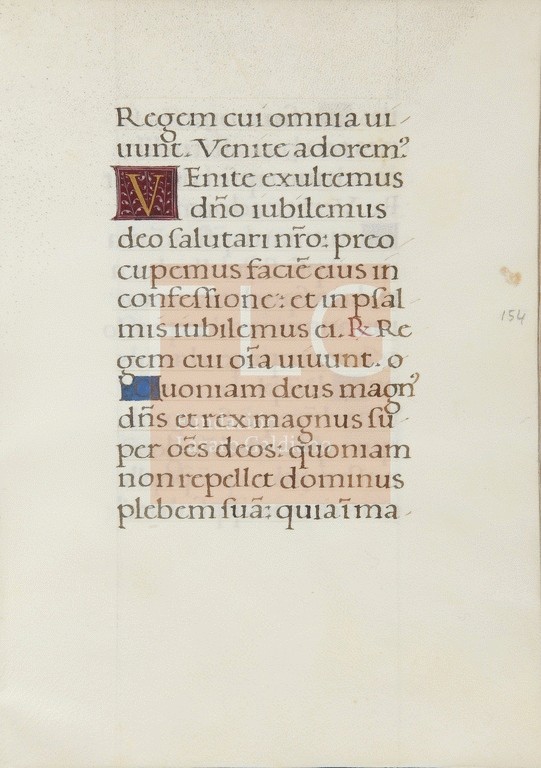 Regem cui omnia ui
uunt. Venite adorem᷒
VEnite exultemus
dn̄o iubilemus
deo ſalutari nr̄o: preo
cupemus faciē eius in
confeſſione: et in pſal
mis iubilemus ei. ℞ Re
gem cui oīa uiuunt. o
uoniam deus magn᷒
dn̄s et rex magnus ſu
per oēs deos: quoniam
non repellet dominus
plebem ſuā: quia ī ma
154
FLG
Fundación
Lázaro Galdiano